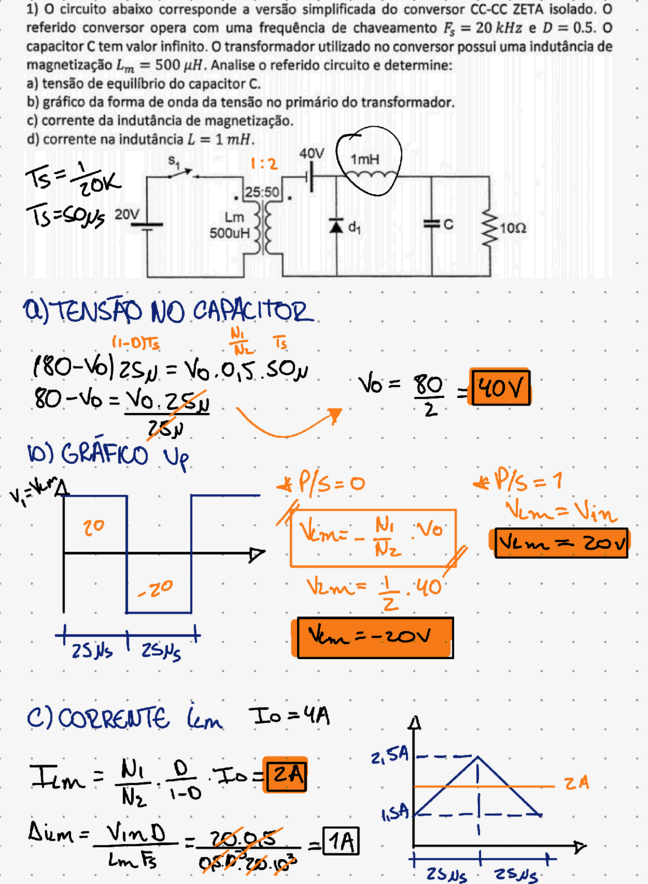 1) O circuito abaixo corresponde a versão simplificada do conversor CC-CC ZETA isolado. O
referido conversor opera com uma frequência de chaveamento Fs = 20 kHz e D = 0.5. O
capacitor C tem valor infinito. O transformador utilizado no conversor possui uma indutância de
magnetização Lm = 500 μH. Analise o referido circuito e determine:
a) tensão de equilíbrio do capacitor C.
b) gráfico da forma de onda da tensão no primário do transformador.
c) corrente da indutância de magnetização.
d) corrente na indutância L = 1 mH.
Ts = 1/20K
Ts = 50μs
S1
1:2
40V
1mH
25:50
20V
Lm
500uH
d1
C
10Ω
a) TENSÃO NO CAPACITOR
(1-D)Ts N1/N2 Ts
(80-Vo) 25μ = Vo . 0,5 . 50μ
80-Vo = Vo . 25μ / 25μ
Vo = 80/2 = 40V
b) GRÁFICO Vp
V1=VLm
20
-20
25μs 25μs
* P/S=0
VLm = - N1/N2 . Vo
VLm = 1/2 . 40
VLm = -20V
* P/S=1
VLm = Vin
VLm = 20V
C) CORRENTE iLm Io = 4A
ILm = N1/N2 . D/1-D . Io = 2A
ΔiLm = Vin D / Lm Fs = 20.0,5 / 0,5.10⁻³ 20.10³ = 1A
2,5A
2A
1,5A
25μs 25μs